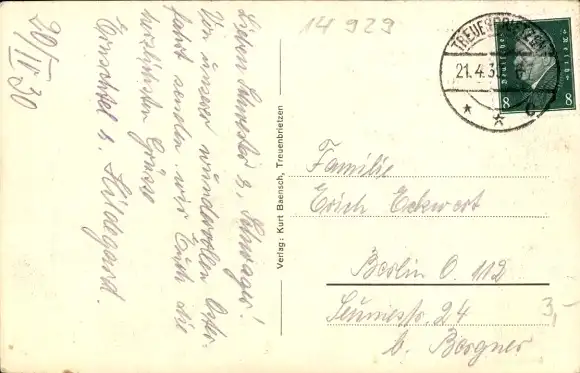 20/IV 30
Lieben Schwester u. Schwager!
Von unserer wundervollen Oster-
fahrt senden wir Euch die
herzlichsten Grüsse
u. Hildegard.
Verlag: Kurt Baensch, Treuenbrietzen
14929
TREUENBRIETZEN
21.4.30
Deutsches Reich
8 8
Familie
Erich Eckwert
Berlin O. 112
Seumestr. 24
b. Bergner
3,-